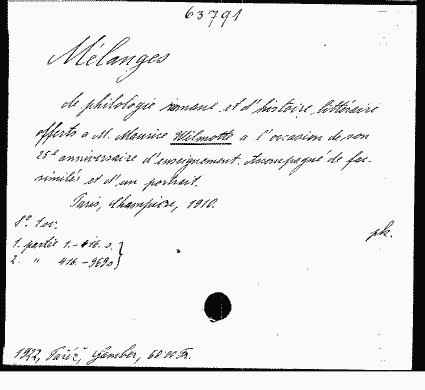 63791
Mélanges
de philologie romane et d'histoire littéraire
offerts a M. Maurice Wilmotte a l'occasion de son
25e anniversaire d'enseignement. Accompagné de fac-
similés et d'un portrait.
Paris, Champion, 1910.
8°. 1 sv.
1. partie 1.-416. s. }
2. " 416.-969 s }
pk.
1922, Paříž, Gamber, 60.00 Fr.